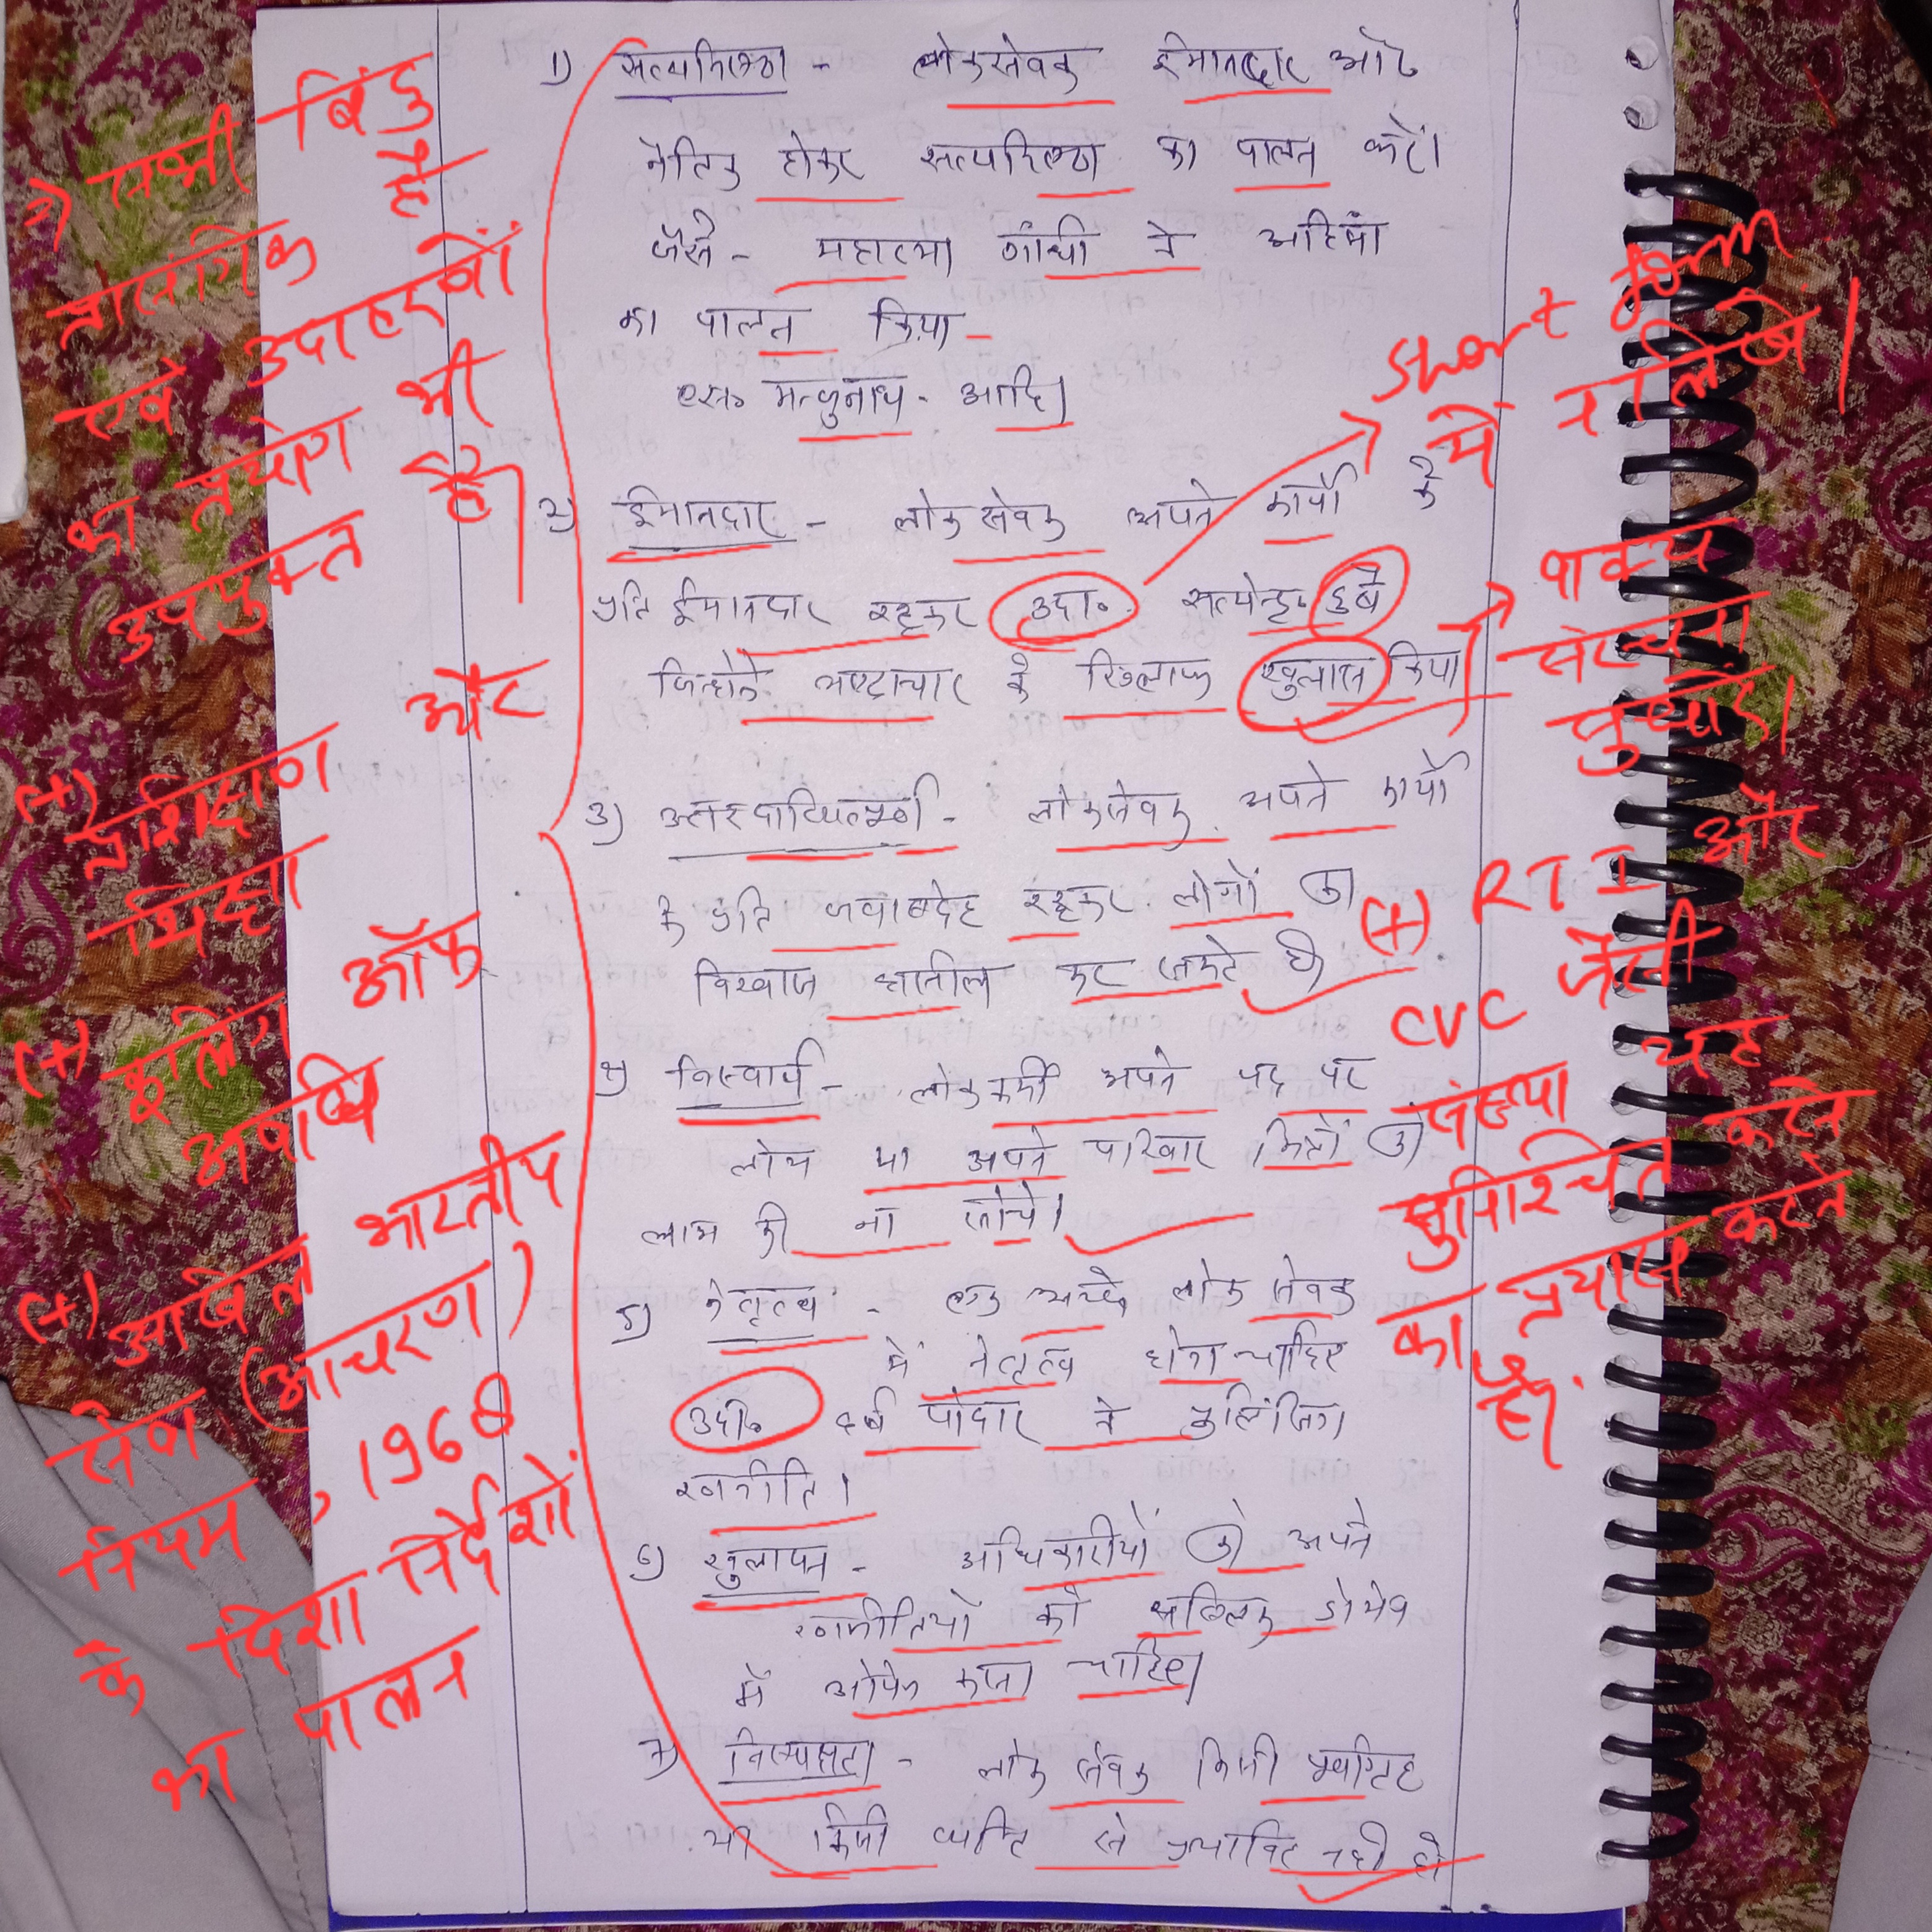 1) सत्यनिष्ठा - लोकसेवक ईमानदार और
नैतिक होकर सत्यनिष्ठा का पालन करें।
जैसे - महात्मा गांधी ने अहिंसा
का पालन किया -
एस० मन्जुनाथ - आदि।
2) ईमानदार - लोक सेवक अपने कार्यो के
प्रति ईमानदार रहकर उदा० सत्येन्द्र दुबे
जिन्होंने भ्रष्टाचार के खिलाफ खुलासा किया
3) उत्तरदायित्वपूर्ण - लोकसेवक अपने कार्यो
के प्रति जवाबदेह रहकर लोगों का
विश्वास हासील कर सकते है।
4) निस्वार्थ - लोककर्मी अपने पद पर
लोभ या अपने परिवार मित्रों को
लाभ की ना सोचे।
5) नेतृत्व - एक अच्छे लोक सेवक
में नेतृत्व होना चाहिए
उदा० हर्ष पोदार ने
रणनीति।
6) खुलापन - अधिकारीयों को अपने
रणनीतियों को पब्लिक डोमेन
में ओपेन करना चाहिए।
7) निष्पक्षता - लोक सेवक किसी
या किसी व्यक्ति से प्रभावित नही हो
=) सभी बिंदु
प्रासंगिक हैं
एवं उदाहरणों
का प्रयोग भी
उपयुक्त है।
(+) प्रशिक्षण और
शिक्षा
(+) कूलिंग ऑफ
अवधि
(+) अखिल भारतीय
सेवा (आचरण)
नियम, 1968
के दिशा निर्देशों
का पालन
short form
में न लिखें।
वाक्य
संरचना
सुधारें।
(+) RTI और
CVC जैसी
संस्था यह
सुनिश्चित करने
का प्रयास करते
हैं।